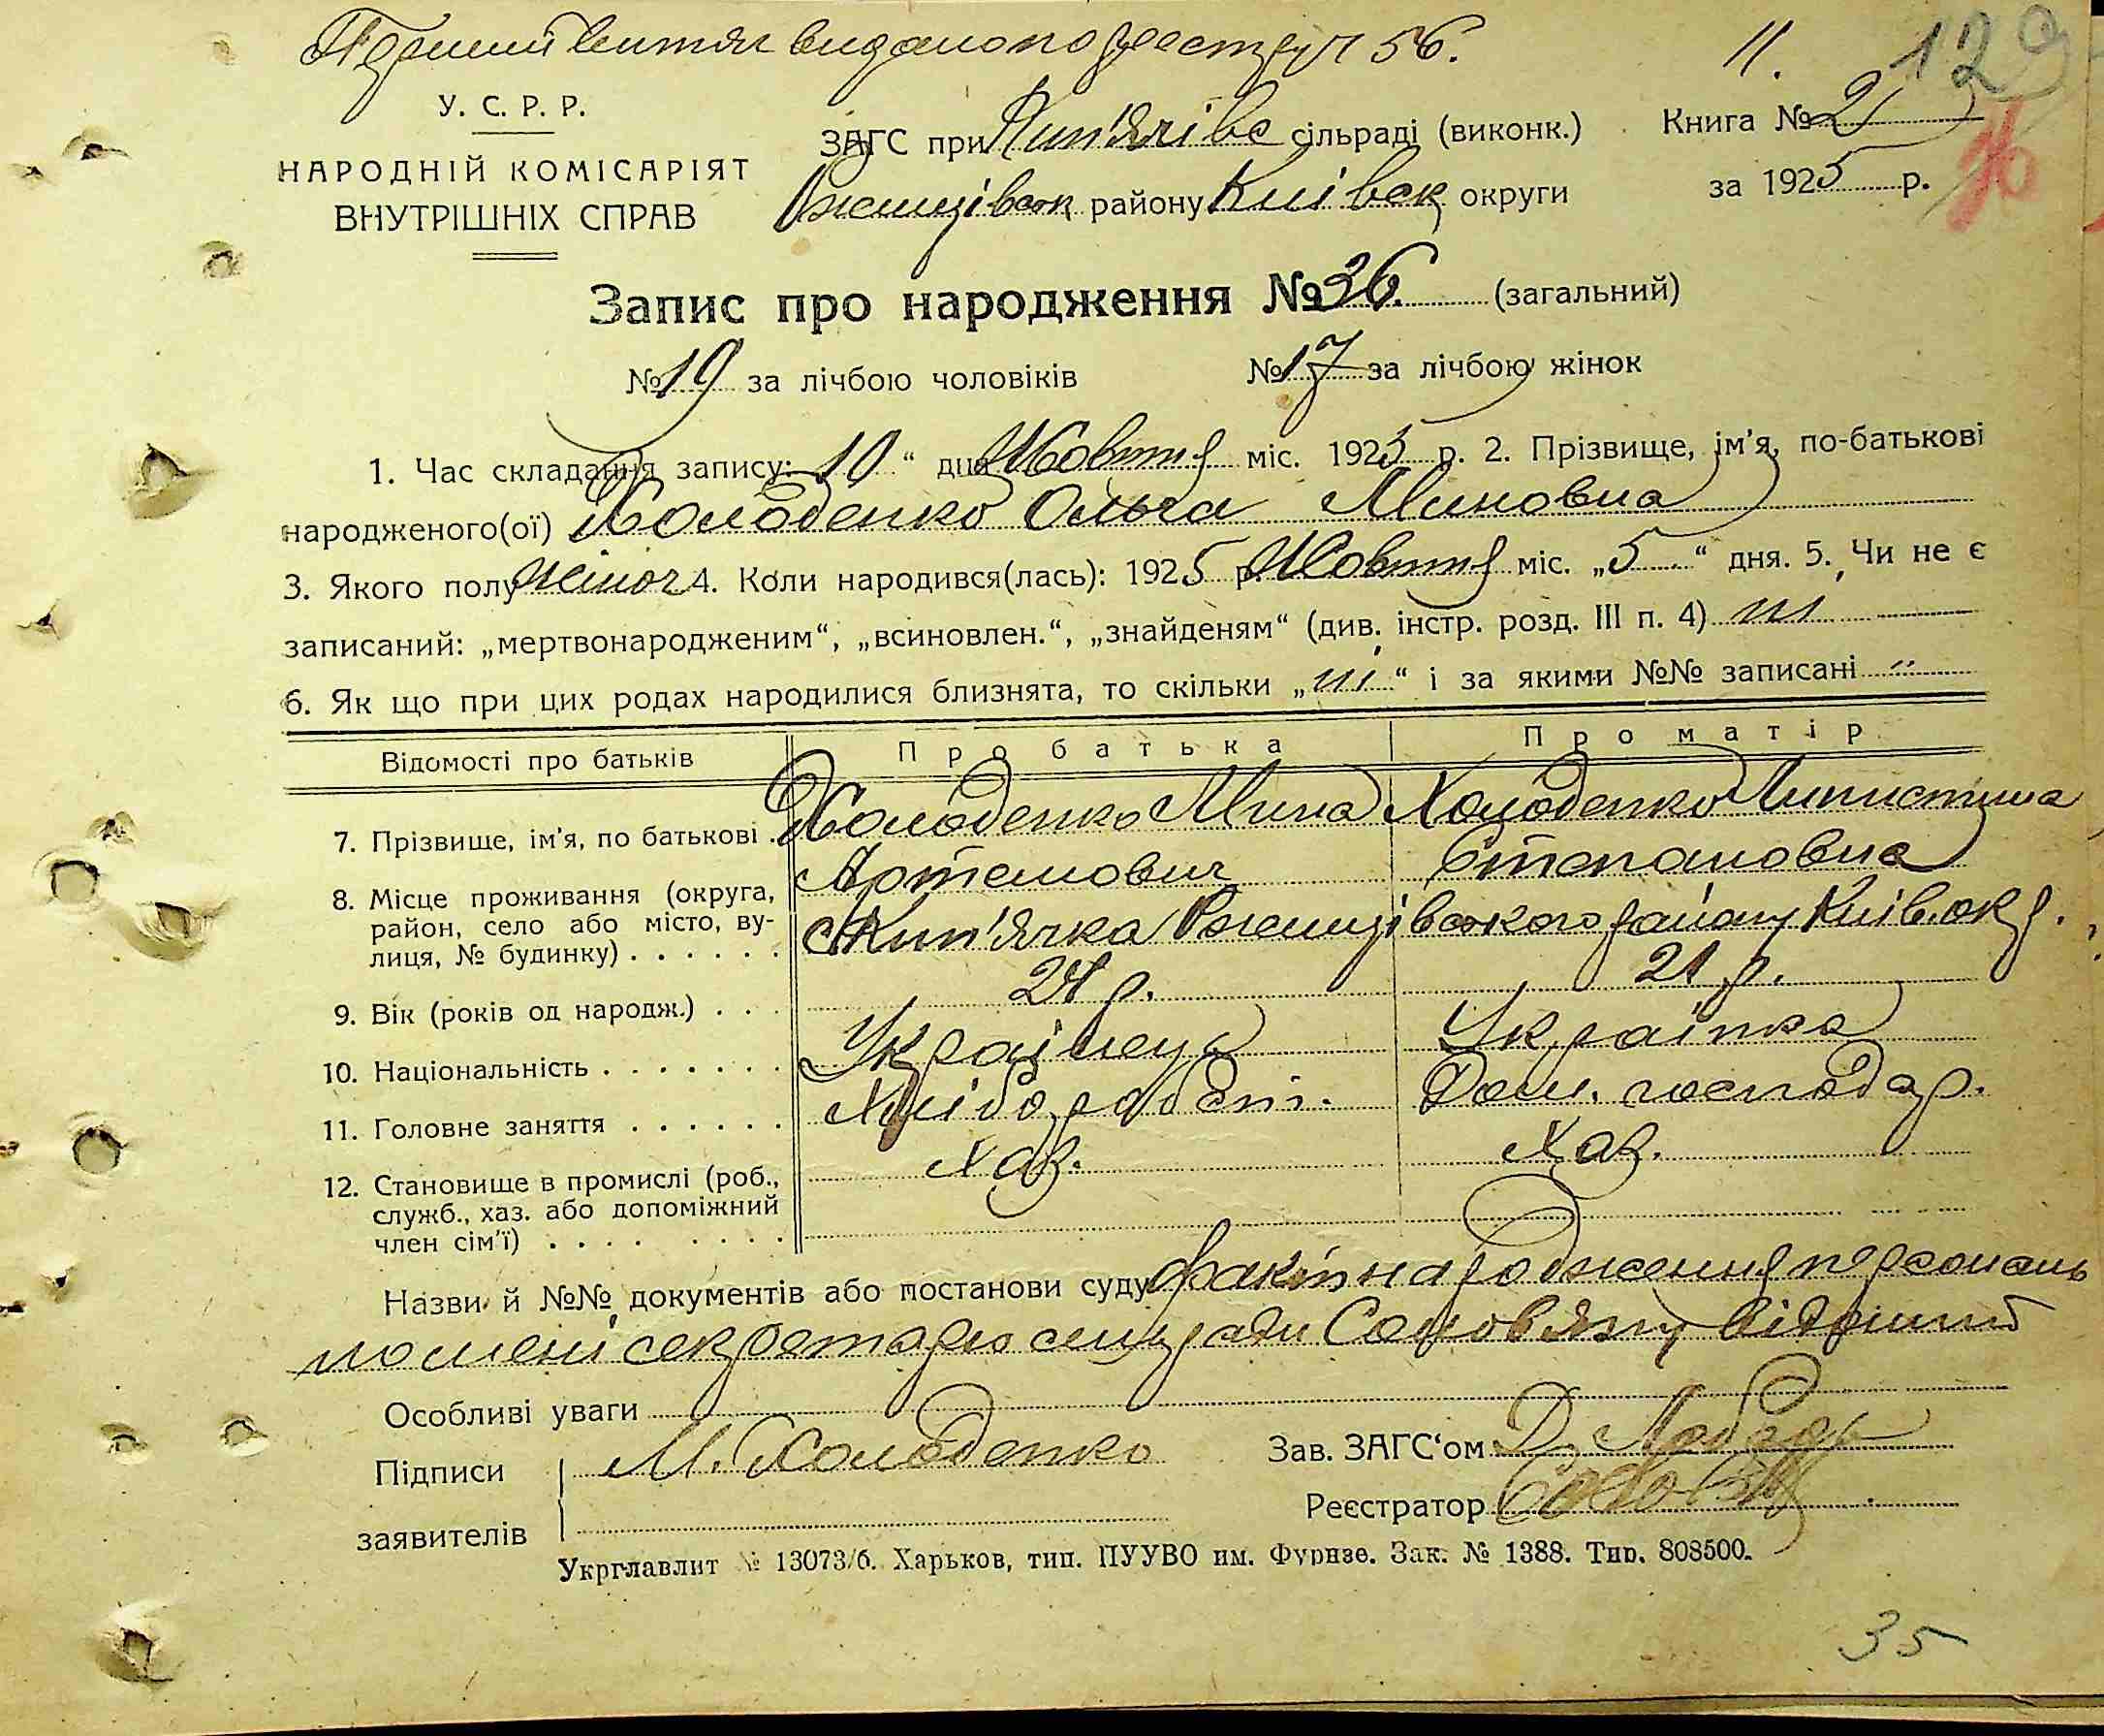 Перший витяг видано по реєстру ч 56. 11. 129
У. С. Р. Р.
НАРОДНІЙ КОМІСАРІЯТ
ВНУТРІШНІХ СПРАВ
ЗАГС при Кип'ячівс сільраді (виконк.) Книга № 2
Ржищівськ району Київськ округи за 1925 р.
Запис про народження № 36. (загальний)
№ 19 за лічбою чоловіків № 17 за лічбою жінок
1. Час складання запису: 10 “ дня Жовтня міс. 1925 р. 2. Прізвище, ім'я, по-батькові
народженого(ої) Холоденко Ольга Миновна
3. Якого полу жіноч 4. Коли народився(лась): 1925 р. Жовтня міс. „5“ дня. 5. Чи не є
записаний: „мертвонародженим“, „всиновлен.“, „знайденям“ (див. інстр. розд. III п. 4) ні
6. Як що при цих родах народилися близнята, то скільки „ні“ і за якими №№ записані "
Відомості про батьків Про батька Про матір
7. Прізвище, ім'я, по батькові . Холоденко Мина Артемович Холоденко Степановна
8. Місце проживання (округа,
район, село або місто, ву-
лиця, № будинку) . . . . . . с Кип'ячка Ржищівського району Київ. окр.
9. Вік (років од народж.) . . . 24 р. 21 р.
10. Національність . . . . . . . Українец Українка
11. Головне заняття . . . . . . Хліборобст. Дом. господар.
12. Становище в промислі (роб.,
служб., хаз. або допоміжний
член сім'ї) . . . . . . . . Хаз. Хаз.
Назви й №№ документів або постанови суду факт народження персональ
но мені секретарю сельради відомий
Особливі уваги
Підписи М. Холоденко Зав. ЗАГС'ом
заявителів Реєстратор
Укрглавлит № 13073/б. Харьков, тип. ПУУВО им. Фрунзе. Зак. № 1388. Тир. 808500.
35